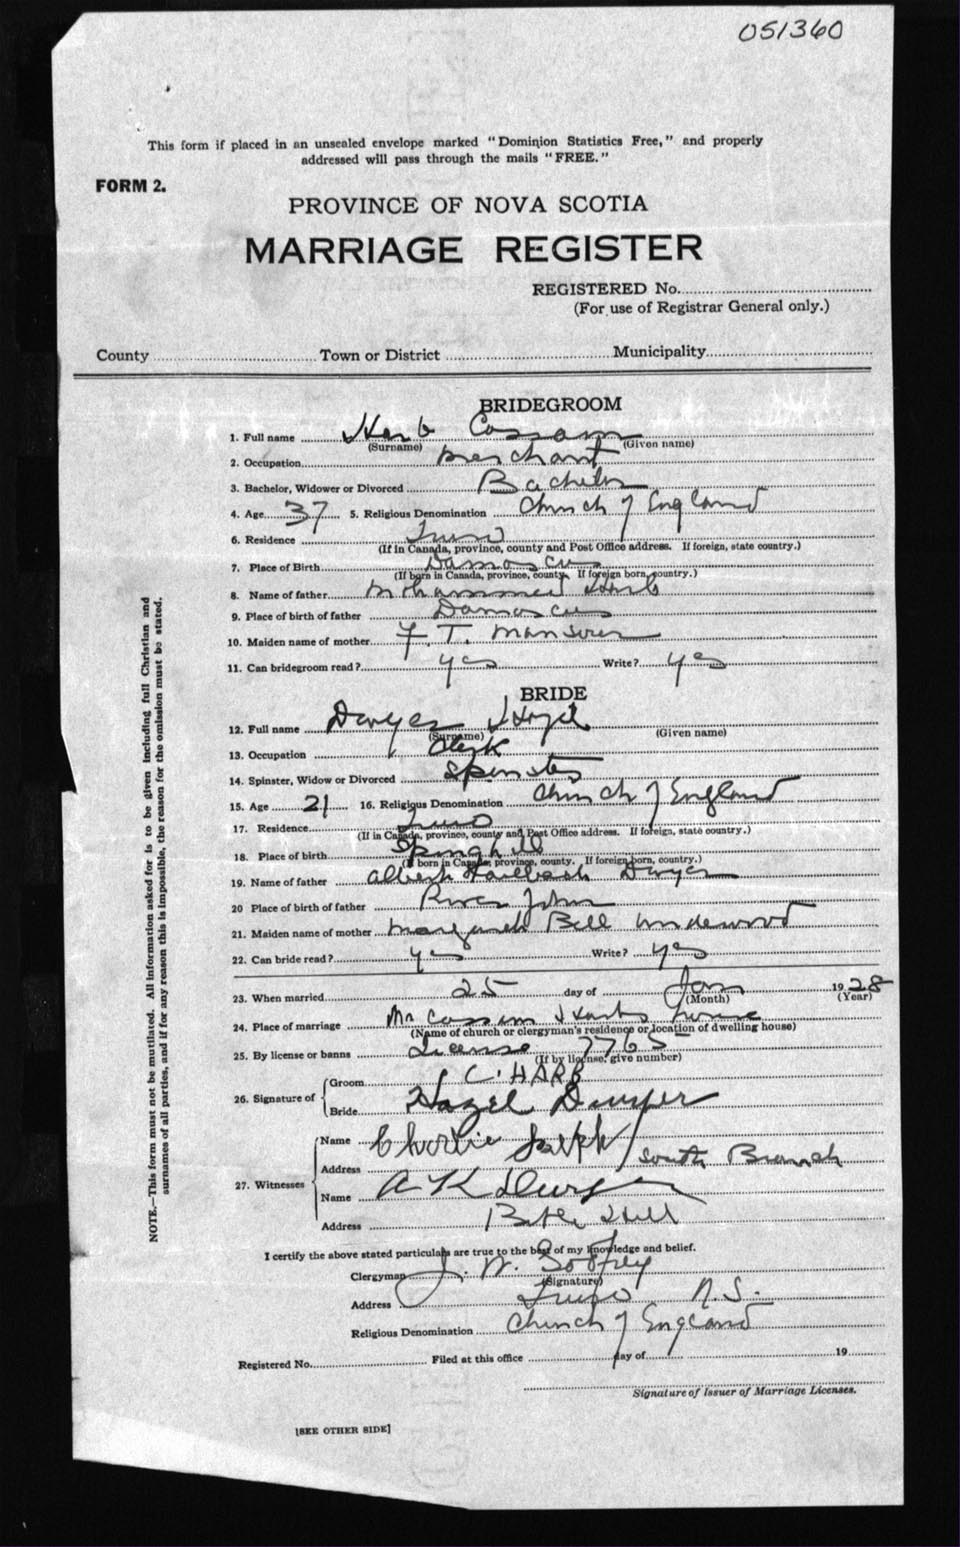 051360
This form if placed in an unsealed envelope marked "Dominion Statistics Free," and properly
addressed will pass through the mails "FREE."
FORM 2.
PROVINCE OF NOVA SCOTIA
MARRIAGE REGISTER
REGISTERED No.
(For use of Registrar General only.)
County Town or District Municipality
BRIDEGROOM
1. Full name Harb Cossam
(Surname) (Given name)
2. Occupation merchant
3. Bachelor, Widower or Divorced Bachelor
4. Age 37 5. Religious Denomination Church of England
6. Residence Truro
(If in Canada, province, county and Post Office address. If foreign, state country.)
7. Place of Birth Damascus
(If born in Canada, province, county. If foreign born, country.)
8. Name of father Mohammed Harb
9. Place of birth of father Damascus
10. Maiden name of mother F. T. Mansour
11. Can bridegroom read? yes Write? yes
BRIDE
12. Full name Dwyer Hazel
(Surname) (Given name)
13. Occupation Clerk
14. Spinster, Widow or Divorced Spinster
15. Age 21 16. Religious Denomination Church of England
17. Residence Truro
(If in Canada, province, county and Post Office address. If foreign, state country.)
18. Place of birth Springhill
(If born in Canada, province, county. If foreign born, country.)
19. Name of father Albert Dwyer
20 Place of birth of father River John
21. Maiden name of mother Margaret Bell Underwood
22. Can bride read? yes Write? yes
23. When married 25 day of Jan 1928
(Month) (Year)
24. Place of marriage Mr Cossam Harbs house
(Name of church or clergyman's residence or location of dwelling house)
25. By license or banns License 7765
(If by license, give number)
26. Signature of Groom C. HARB
Bride Hazel Dwyer
27. Witnesses
Name Charlie
Address South Branch
Name A K Dwyer
Address Bible Hill
I certify the above stated particulars are true to the best of my knowledge and belief.
Clergyman J. W. Godfrey
(Signature)
Address Truro N.S.
Religious Denomination Church of England
Registered No. Filed at this office day of 19
Signature of Issuer of Marriage Licenses.
[SEE OTHER SIDE]
NOTE.—This form must not be mutilated. All information asked for is to be given including full Christian and
surnames of all parties, and if for any reason this is impossible, the reason for the omission must be stated.